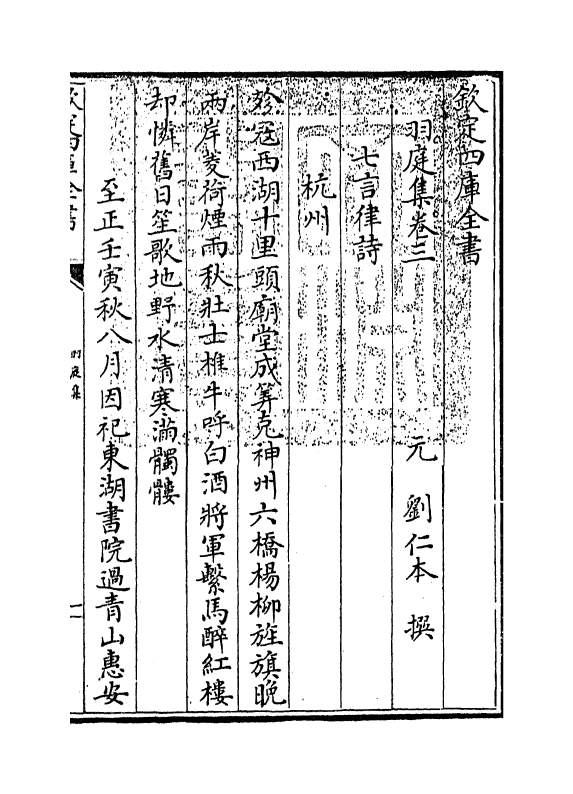 欽定四庫全書
羽庭集卷三
元 劉仁本 撰
七言律詩
杭州
殄寇西湖十里頭廟堂成筭克神州六橋楊柳旌旗晚
兩岸菱荷煙雨秋壯士椎牛呼白酒將軍繫馬醉紅樓
却憐舊日笙歌地野水清寒滿髑髏
至正壬寅秋八月因祀東湖書院過青山惠安
欽定四庫全書
羽庭集
一